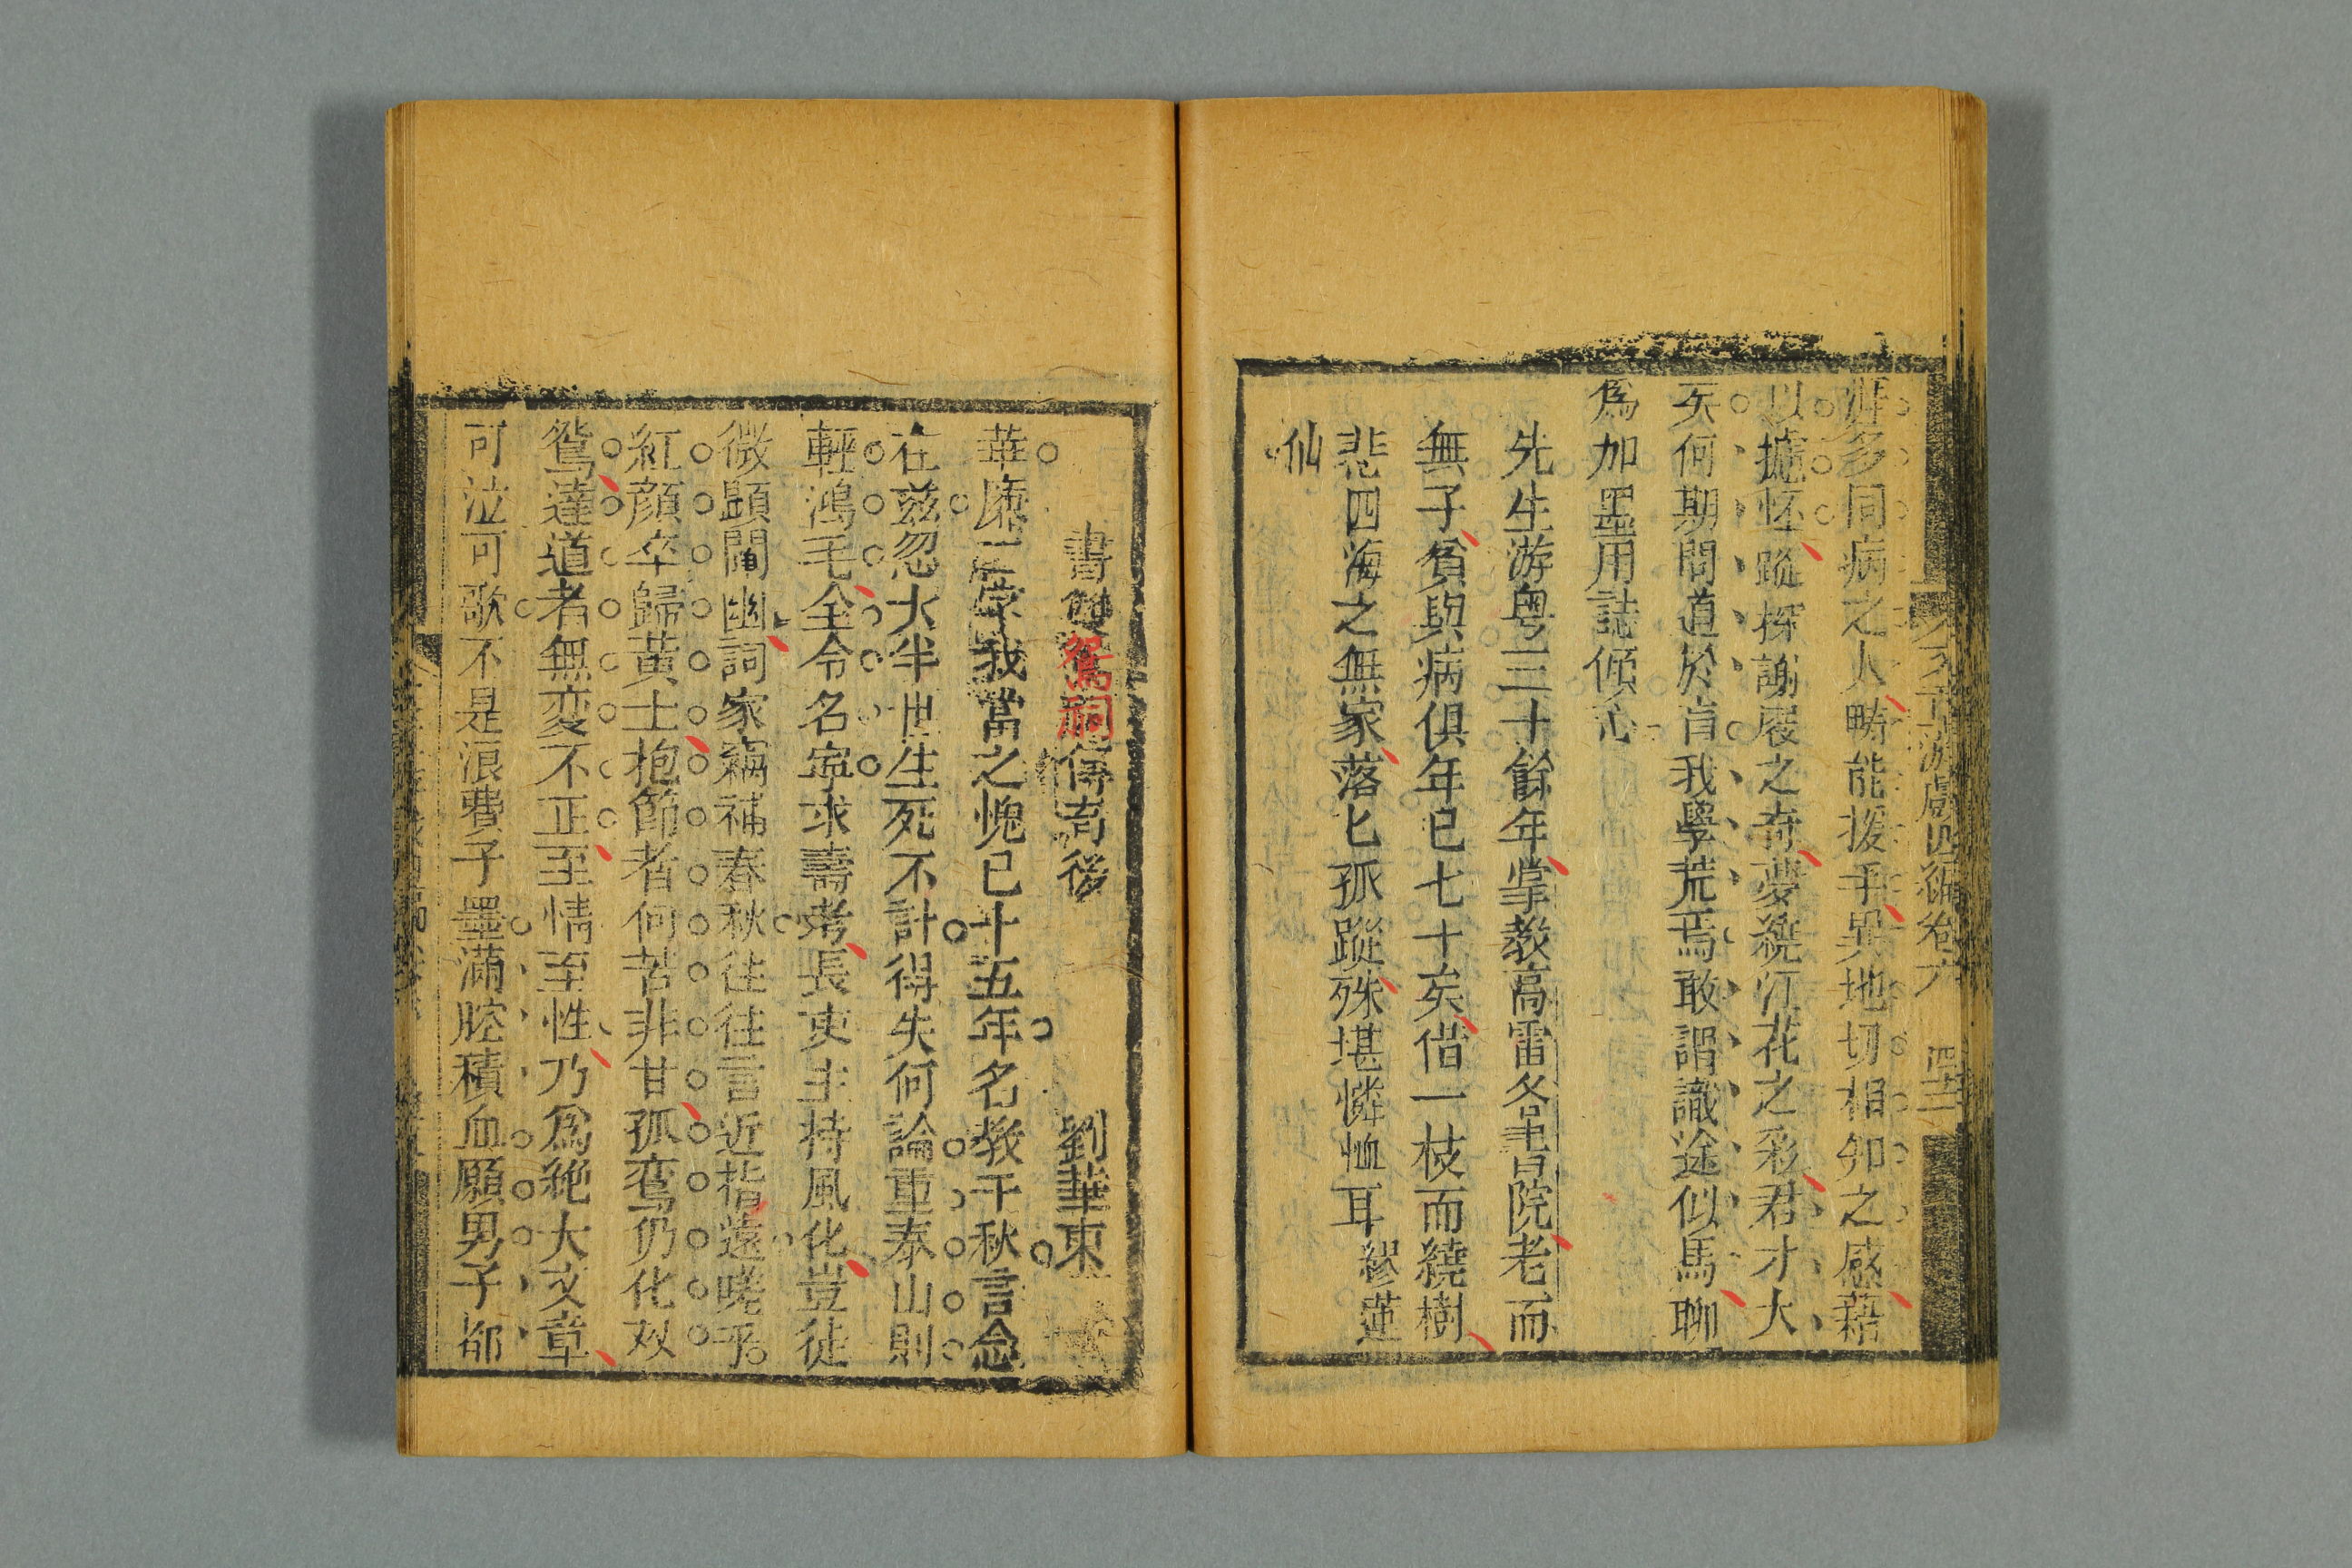 涯多同病之人疇能援手異地切相知之感藉
以攄怀蹤探謝屐之奇夢繞江花之彩君才大
矣何期問道於盲我學荒焉敢謂識途似馬聊
為加墨用誌傾心
先生游粤三十餘年掌教高雷各書院老而
無子貧與病俱年已七十矣借一枝而繞樹
悲四海之無家落匕孤蹤殊堪憐恤耳 繆蓮
仙
書雙鴛祠傳奇後 劉華東
華廉三棠我當之愧已十五年名教千秋言念
在兹忽大半世生死不計得失何論重泰山則
輕鴻毛全令名寧求壽考長吏主持風化豈徒
微顕闡幽詞家竊補春秋往往言近指遠嗟乎
紅顔卒歸黄土抱節者何苦非甘孤鸞仍化双
鴛達道者無変不正至情至性乃為絶大文章
可泣可歌不是浪費子墨滿腔積血願男子都